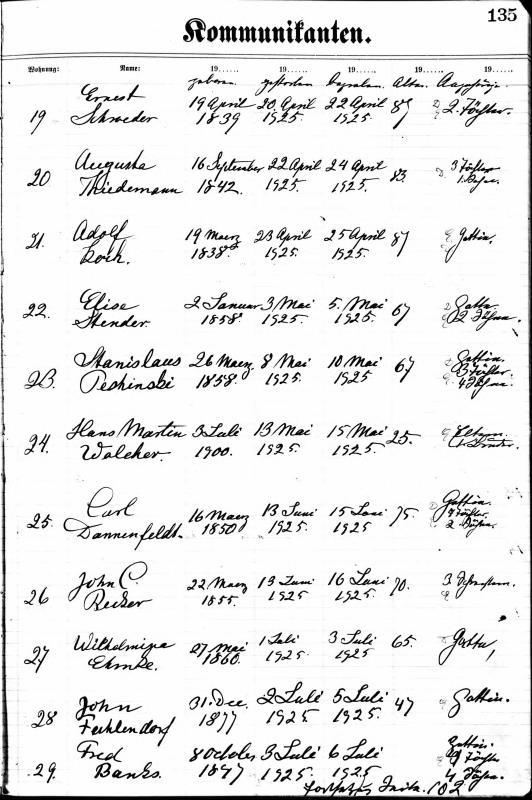 135
Kommunikanten.
Wohnung: Name: 19...... 19...... 19...... 19...... 19......
geboren. gestorben begraben. Alter.
Ernest 19 April 20 April 22 April 87 2 Töchter.
19 Schroeder 1839 1925. 1925.
Augusta 16 September 22 April 24 April 83 3 Töchter
20 Thiedemann 1842. 1925. 1925.
Adolf 19 Maerz 23 April 25 April 87 Gattin.
21. Koch. 1838. 1925. 1925.
Elise 2 Januar 3 Mai 5. Mai 67 Gatte.
22. Stender. 1858. 1925. 1925. 2 Söhne.
Stanislaus 26 Maerz 8 Mai 10 Mai 67 Gattin.
23. Peshinski 1858. 1925. 1925 3 Töchter
4 Söhne.
Hans Martin 3 Juli 13 Mai 15 Mai 25. Eltern.
24. Walcher. 1900. 1925. 1925.
Carl 16 Maerz 13 Juni 15 Juni 75. Gattin.
25. Dannenfeldt. 1850 1925. 1925 4 Töchter.
2 Söhne.
John C. 22 Maerz 13 Juni 16 Juni 70. 3
26 Recker 1855. 1925. 1925.
Wilhelmina 27 Mai 1 Juli 3 Juli 65. Gatte,
27 Ehmke. 1860. 1925. 1925
John 31. Dec. 2 Juli 5 Juli 47 Gattin.
28 Fehlendorf 1877 1925 1925.
Fred 8 October 3 Juli 6 Juli Gattin.
29. Banks. 1847 1925. 1925 Töchter
4 Söhne.
Fortsetzg Seite. 102